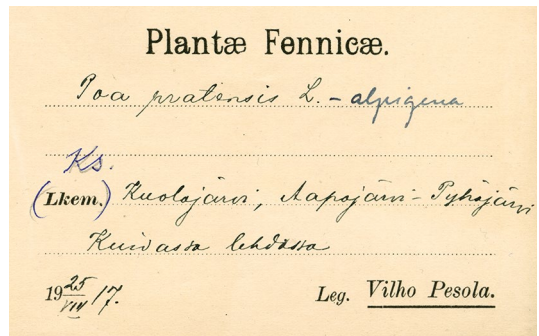 Plantæ Fennicæ.
Poa pratensis L. - alpigena
Ks.
(Lkem.) Kuolajärvi, Aapajärvi - Pyhäjärvi
Kuivassa lehdossa
19 25/VIII 17. Leg. Vilho Pesola.